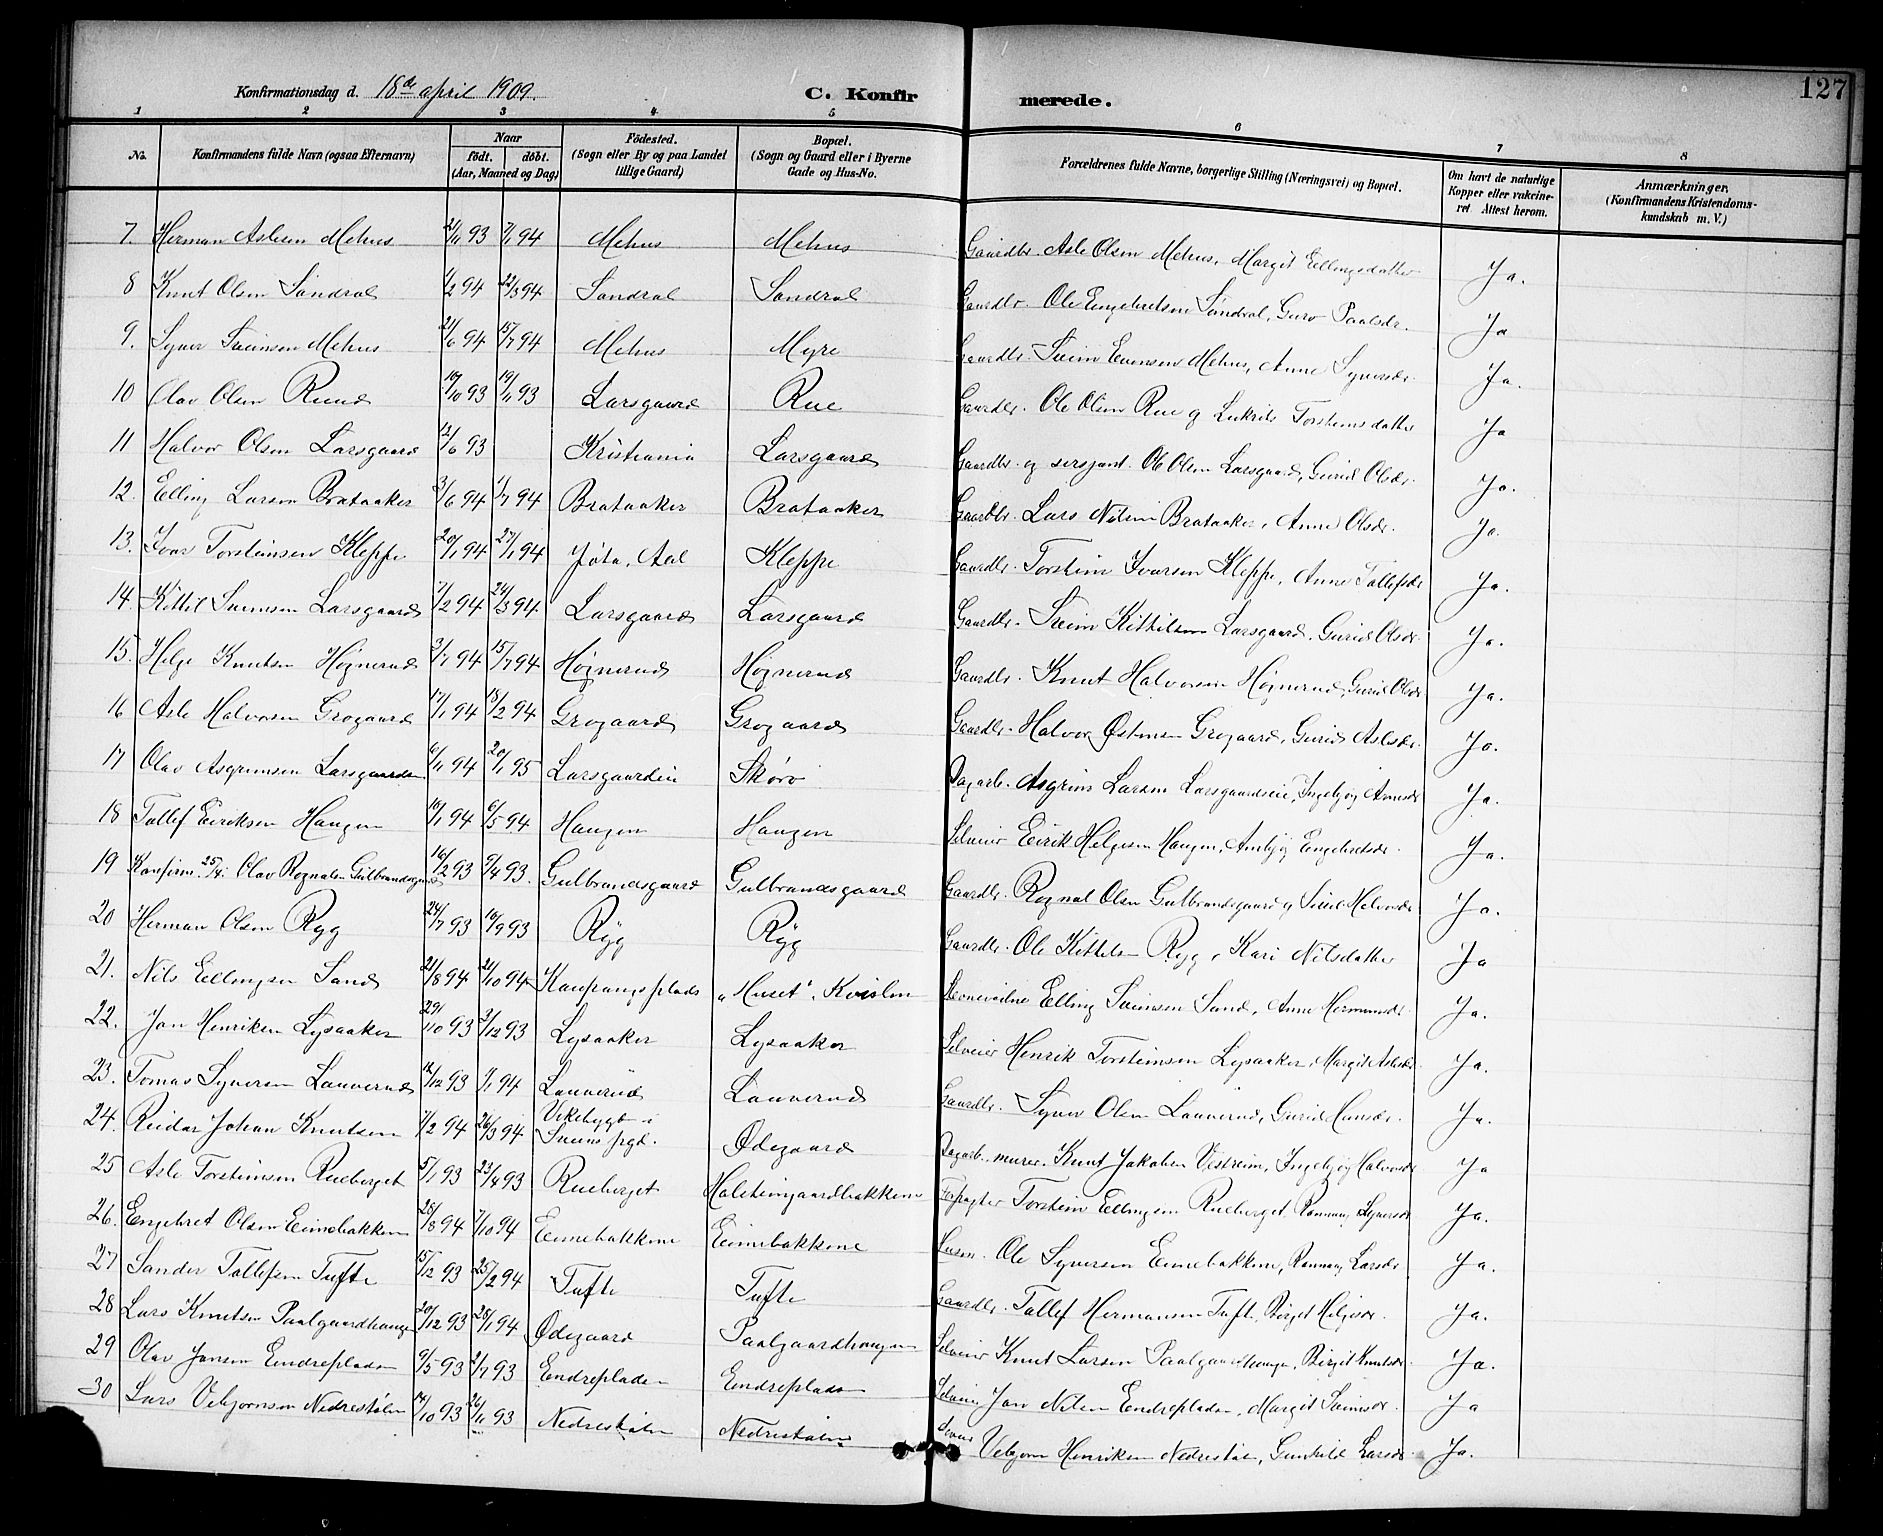 127
Konfirmationsdag d. 18de april 1909. C. Konfirmerede.
1 2 3 4 5 6 7 8
No. Konfirmandens fulde Navn (ogsaa Efternavn) Naar født. døbt. (Aar, Maaned og Dag) Fødested. (Sogn eller By og paa Landet tillige Gaard) Bopæl. (Sogn og Gaard eller i Byerne Gade og Hus-No. Forældrenes fulde Navne, borgerlige Stilling (Næringsvei) og Bopæl. Om havt de naturlige Kopper eller vakcineret Attest herom. Anmærkninger. (Konfirmandens Kristendomskundskab m. V.)
7. Herman Aslesen Mehus 21/11 93 7/1 94 Mehus Mehus Gaardbr. Asle Olsen Mehus, Margit Ellingsdatter Ja.
8 Knut Olsen Søndral 1/2 94 22/3 94 Søndral Søndral Gaardbr. Ole Engebretsen Søndral, Guro Paalsdr. Ja
9. Syver Sveinsen Mehus 21/6 94 15/7 94 Mehus Myre Gaardbr. Svein Evensen Mehus, Anne Syversdr. Ja.
10 Olav Olsen Ruud 10/10 93 19/11 93 Larsgaard Rue Gaardbr. Ole Olsen Rue og Lukrids Torsteinsdatter Ja
11 Halvor Olsen Larsgaard 12/6 93 Kristiania Larsgaard Gaardbr. og sersjant. Ole Olsen Larsgaard, Gurid Olsdr. Ja.
12. Elling Larsen Brataaker 3/6 94 1/7 94 Brataaker Brataaker Gaardbr. Lars Nilsen Brataaker, Anne Olsdr. Ja.
13. Ivar Torsteinsen Kleppe 20/1 94 27/1 94 Jøta, Aal Kleppe Gaardbr. Torstein Ivarsen Kleppe, Anne Tollefsdr Ja.
14. Kittil Sveinsen Larsgaard 7/2 94 24/3 94 Larsgaard Larsgaard Gaardbr. Svein Kittilsen Larsgaard, Gurid Olsdr. Ja.
15. Helge Knutsen Høgnerud 3/7 94 15/7 94 Høgnerud Høgnerud Gaardbr. Knut Halvorsen Høgnerud, Gurid Olsdr Ja.
16 Asle Halvorsen Grøgaard 17/1 94 18/2 94 Grøgaard Grøgaard Gaardbr. Halvor Østensen Grøgaard, Gurid Aslesdr. Ja.
17 Olav Asgrimsen Larsgaardeie 6/11 94 20/1 95 Larsgaardeie Skøro Dagarb. Asgrim Larsen Larsgaardseie, Ingebjøg Arnesdr Ja.
18 Tollef Eiriksen Haugen 10/1 94 6/5 94 Haugen Haugen Selveier Eirik Helgesen Haugen, Ambjøg Engebretsdr. Ja.
19 Konfirm. 25/4. Olav Rognalsen Gulbrandsgaard 16/2 93 9/4 93. Gulbrandsgaard Gulbrandsgaard Gaardbr. Rognal Olsen Gulbrandsgaard og Sirid Halvorsdr Ja.
20 Herman Olsen Ryg 24/7 93 10/9 93 Ryg Ryg Gaardbr. Ole Kittilsen Ryg, Kari Nilsdatter Ja
21. Nils Ellingsen Sand 21/8 94 21/10 94 Kaupangsplads "Huset", Kvislen Elling Sveinsen Sand, Anne Hermansdr. Ja.
22. Jan Henriksen Lysaaker 29/10 93 3/12 93 Lysaaker Lysaaker Selveier Henrik Torsteinsen Lysaaker, Margit Aslesdr. Ja.
23. Tomas Syversen Lauverud 12/12 93 1/1 94 Lauverud Lauverud Gaardbr. Syver Olsen Lauverud, Gurid Ja.
24. Reidar Johan Knutsen 7/2 94 26/3 94 Vikebygt i Sveens prgd. Ødegaard Dagarb. murer. Knut Jakobsen Vestreim, Ingebjøg Halvorsdr Ja
25 Asle Torsteinsen Rueberget 5/1 93 23/4 93 Rueberget Holsteingaardbakkene Forpagter Torstein Ellingsen Rueberget, Rannaug Syversdr. Ja.
26. Engebret Olsen Eimebakken 28/8 94 7/10 94 Eimebakkene Eimebakkene Husm. Ole Syversen Eimebakkene, Rannaug Larsdr. Ja.
27 Sander Tollefsen Tufte 15/12 93 25/2 94 Tufte Tufte Gaardbr. Tollef Hermansen Tufte, Birget Helgesdr. Ja.
28 Lars Knutsen Paalgaardhaugen 20/12 93 28/1 94 Ødegaard Paalgaardhaugen Selveier Knut Larsen Paalgaardhaugen, Birgit Knutsdr. Ja.
29 Olav Jansen Endrepladsen 9/5 93 2/7 93 Endrepladsen Endreplads Selveier Jan Nilsen Endrepladsen, Margit Sveinsdr. Ja
30 Lars Vebjørnsen Nedrestølen 14/10 93 26/11 93 Nedrestølen Nedrestølen Selveier Vebjørn Henriksen Nedrestølen, Gunhild Larsdr. Ja.